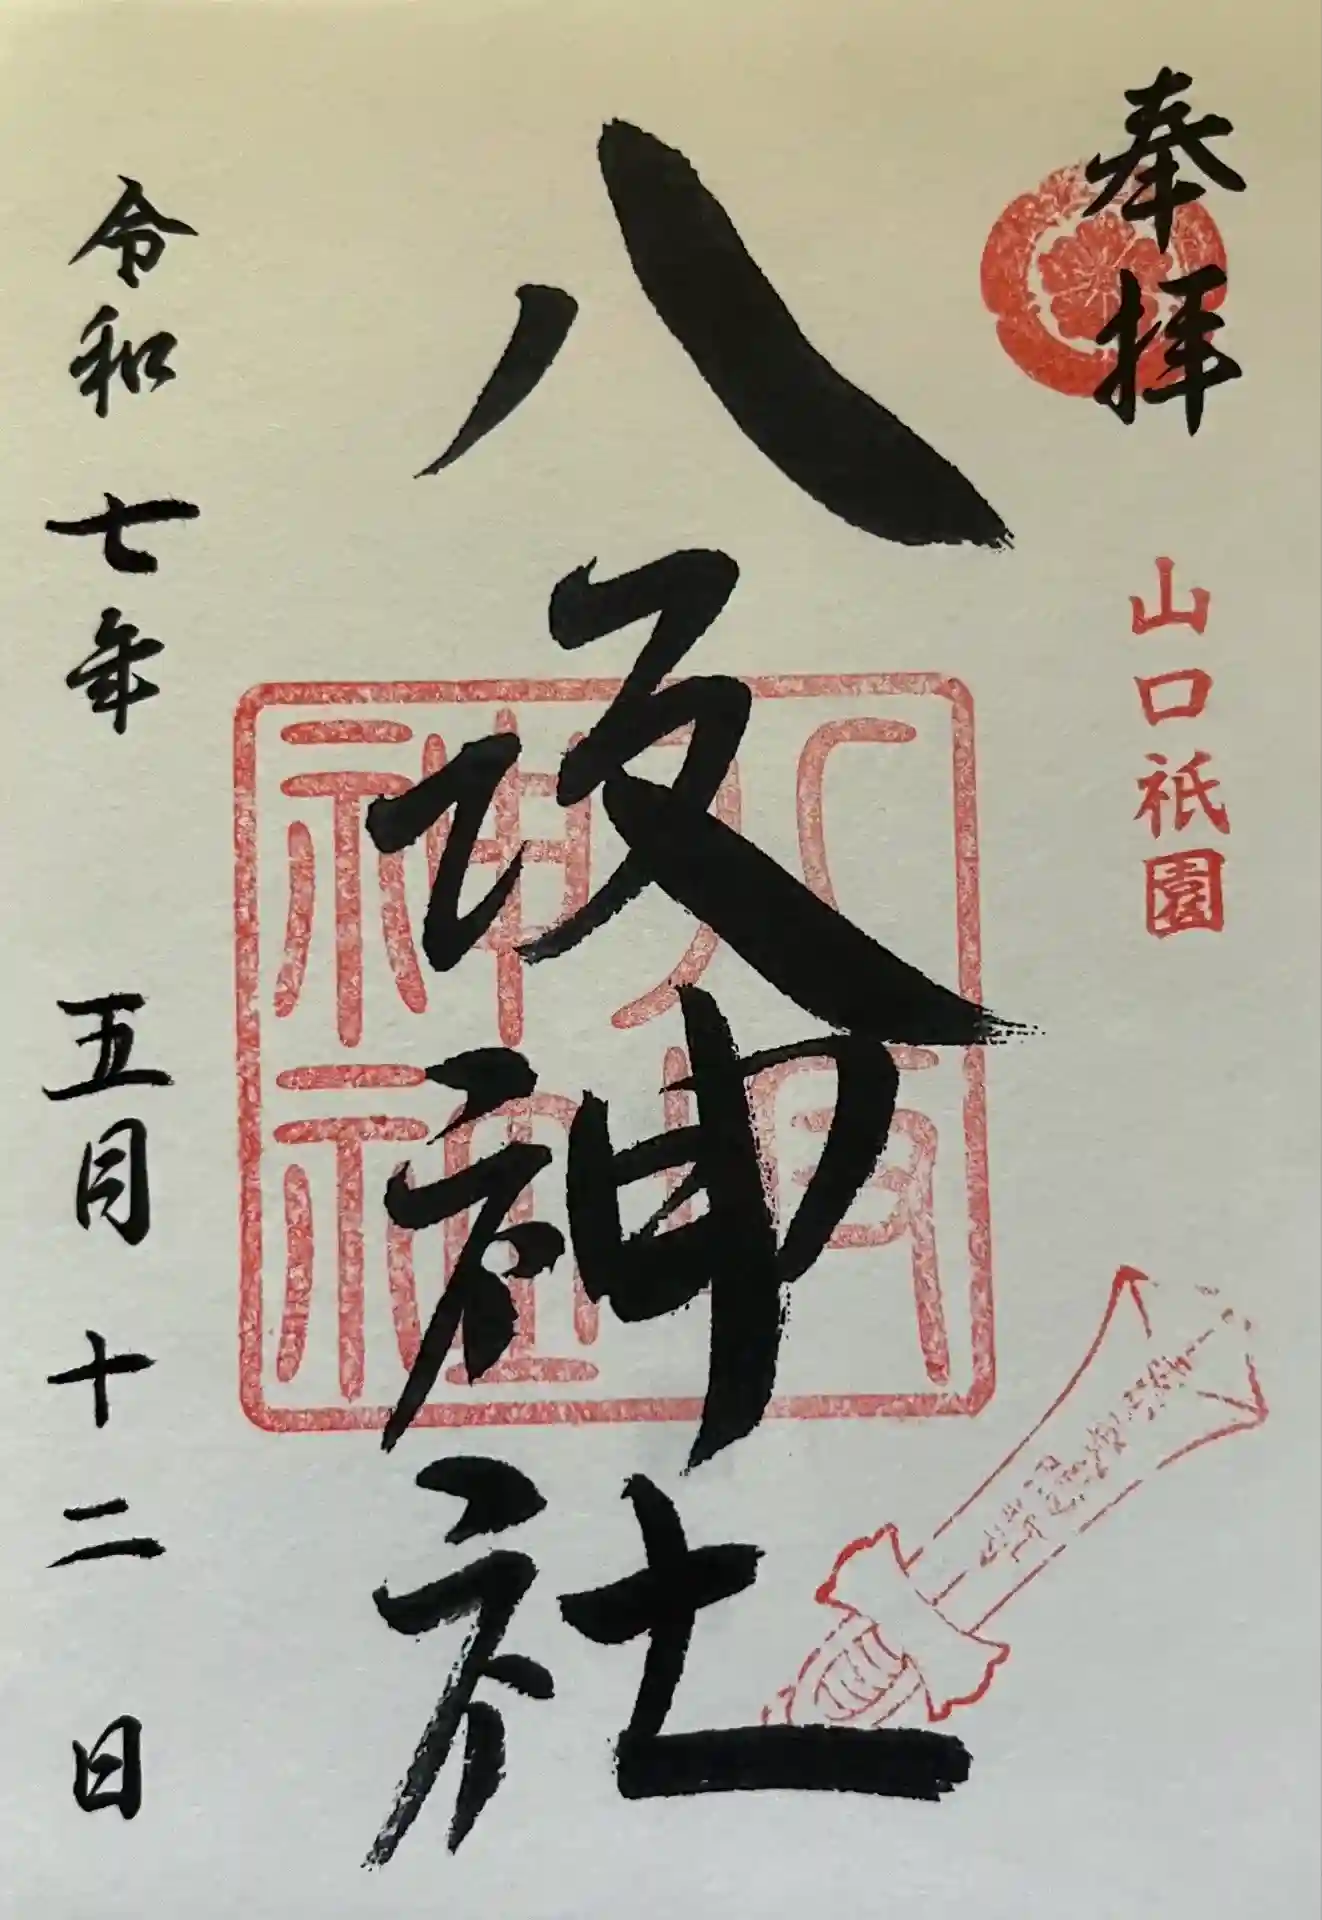 奉拝
山口祇園
八坂神社
八坂
神社
令和七年 五月十二日